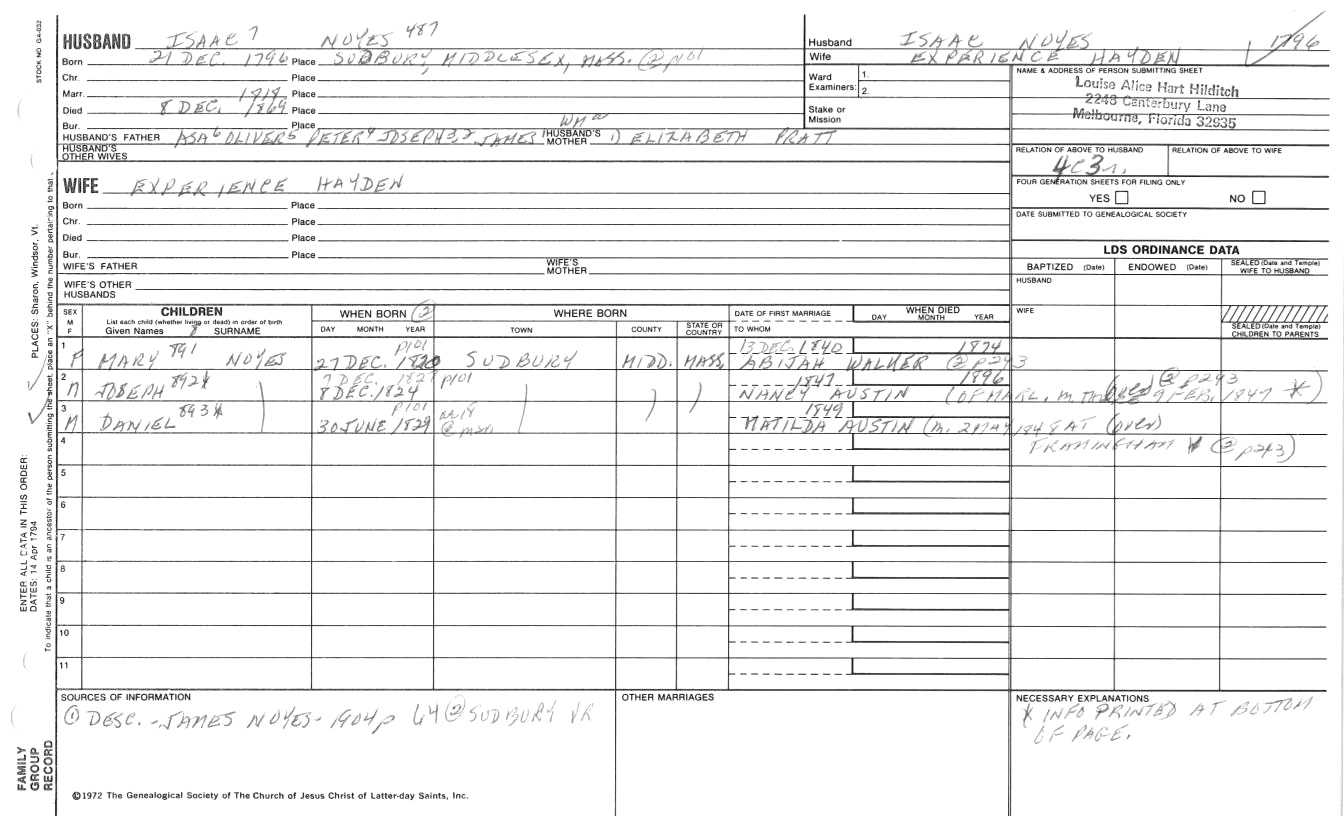 STOCK NO. GA-032
HUSBAND ISAAC 7 NOYES 487
Born 21 DEC. 1796 Place SUDBURY, MIDDLESEX, MASS. ② p101
Chr. Place
Marr. 1818 Place
Died 8 DEC. 1864 Place
Bur. Place
HUSBAND'S FATHER ASA 6 OLIVER 5 PETER 4 JOSEPH 3,2 JAMES WM HUSBAND'S MOTHER 1) ELIZABETH PRATT
HUSBAND'S OTHER WIVES
WIFE EXPERIENCE HAYDEN
Born Place
Chr. Place
Died Place
Bur. Place
WIFE'S FATHER WIFE'S MOTHER
WIFE'S OTHER HUSBANDS
Husband ISAAC NOYES 1796
Wife EXPERIENCE HAYDEN
Ward Examiners: 1. 2.
Stake or Mission
NAME & ADDRESS OF PERSON SUBMITTING SHEET
Louise Alice Hart Hilditch
2248 Canterbury Lane
Melbourne, Florida 32935
RELATION OF ABOVE TO HUSBAND RELATION OF ABOVE TO WIFE
4C3r.
FOUR GENERATION SHEETS FOR FILING ONLY
YES NO
DATE SUBMITTED TO GENEALOGICAL SOCIETY
LDS ORDINANCE DATA
BAPTIZED (Date) ENDOWED (Date) SEALED (Date and Temple) WIFE TO HUSBAND
HUSBAND
WIFE
SEALED (Date and Temple) CHILDREN TO PARENTS
SEX M F CHILDREN List each child (whether living or dead) in order of birth Given Names 8 SURNAME
WHEN BORN ② DAY MONTH YEAR
WHERE BORN TOWN COUNTY STATE OR COUNTRY
DATE OF FIRST MARRIAGE TO WHOM
WHEN DIED DAY MONTH YEAR
p101 13 DEC. 1840 1874
1 F MARY 891 NOYES 27 DEC. 1820 SUDBURY MIDD. MASS. ABIJAH WALKER ② p293
7 DEC. 1827 p101 1847 1896 (over) ② p293
2 M JOSEPH 892 8 DEC. 1824 NANCY AUSTIN (OF MARL. m. 9 FEB. 1847 *)
p101 1849
3 M DANIEL 893 30 JUNE 1829 MATILDA AUSTIN (m. 2 MAY 1848 AT (over)
4 FRAMINGHAM (② p243)
5
6
7
8
9
10
11
SOURCES OF INFORMATION
① DESC. - JAMES NOYES - 1904 p 64 ② SUDBURY VR
OTHER MARRIAGES
NECESSARY EXPLANATIONS
* INFO PRINTED AT BOTTOM
OF PAGE.
ENTER ALL DATA IN THIS ORDER:
DATES: 14 Apr 1794
PLACES: Sharon, Windsor, Vt.
To indicate that a child is an ancestor of the person submitting the sheet, place an "X" behind the number pertaining to that
FAMILY GROUP RECORD
©1972 The Genealogical Society of The Church of Jesus Christ of Latter-day Saints, Inc.